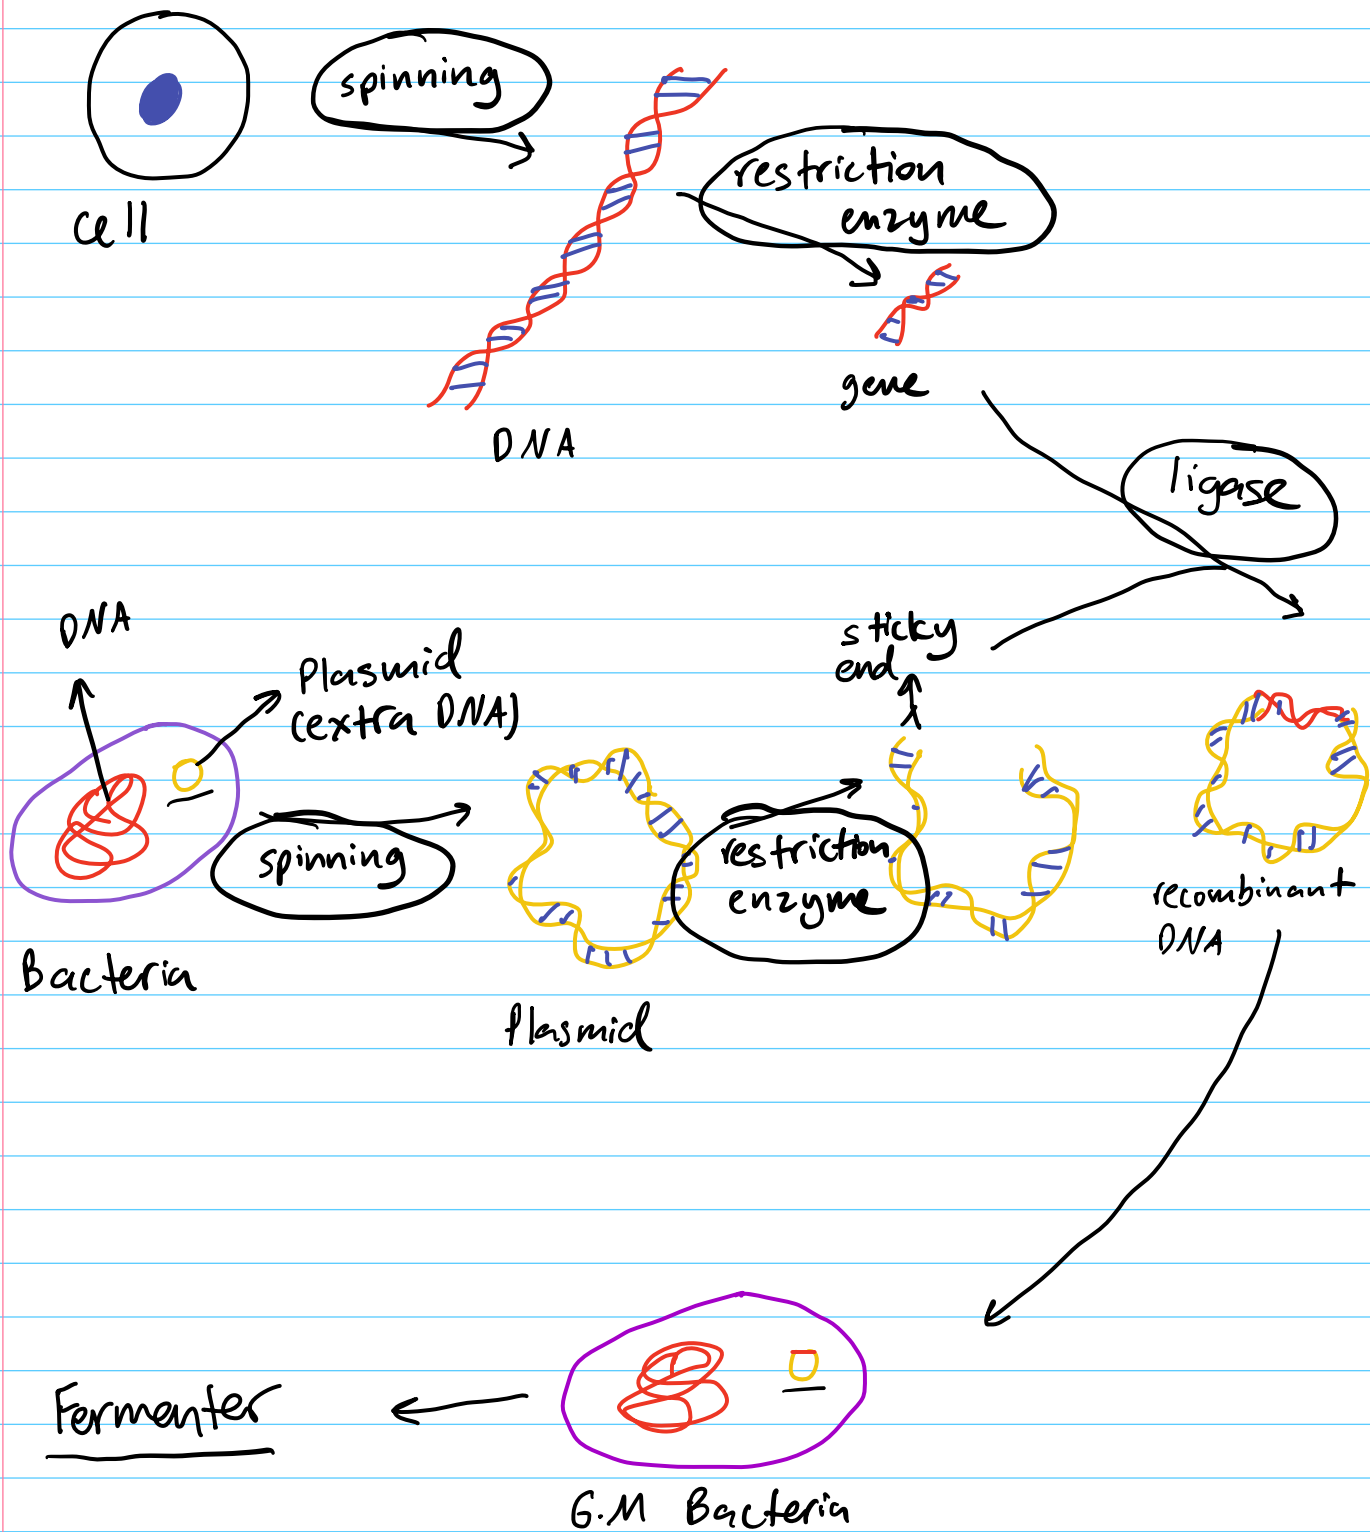 spinning
cell
restriction
enzyme
gene
DNA
ligase
DNA
Plasmid
(extra DNA)
sticky
end
spinning
restriction
enzyme
recombinant
DNA
Bacteria
Plasmid
Fermenter
G.M Bacteria